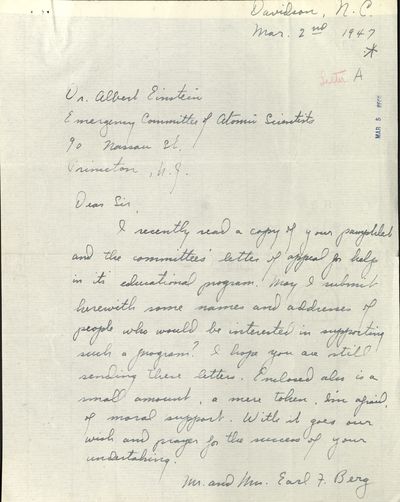 Davidson, N.C.
Mar. 2nd 1947
*
Letter A
MAR 5
Dr. Albert Einstein
Emergency Committee of Atomic Scientists
90 Nassau St.
Princeton, N.J.
Dear Sir,
I recently read a copy of your pamphlet
and the committees' letter of appeal for help
in its educational program. May I submit
herewith some names and addresses of
people who would be interested in supporting
such a program? I hope you are still
sending these letters. Enclosed also is a
small amount, a mere token, I'm afraid,
of moral support. With it goes our
wish and prayer for the success of your
undertaking.
Mr. and Mrs. Earl F. Berg